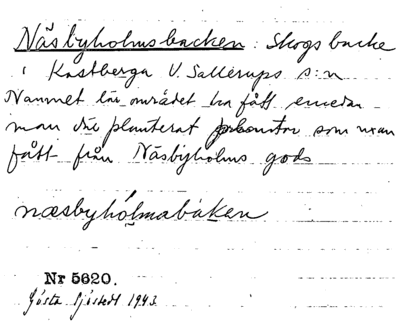 Näsbyholmsbacken: Skogsbacke
i Kastberga V. Sallerups s:n
Namnet lär området ha fått emedan
man där planterat plantor som man
fått från Näsbyholms gods
næsbyhólmabakən
Nr 5620.
Gösta Sjöstedt 1943.